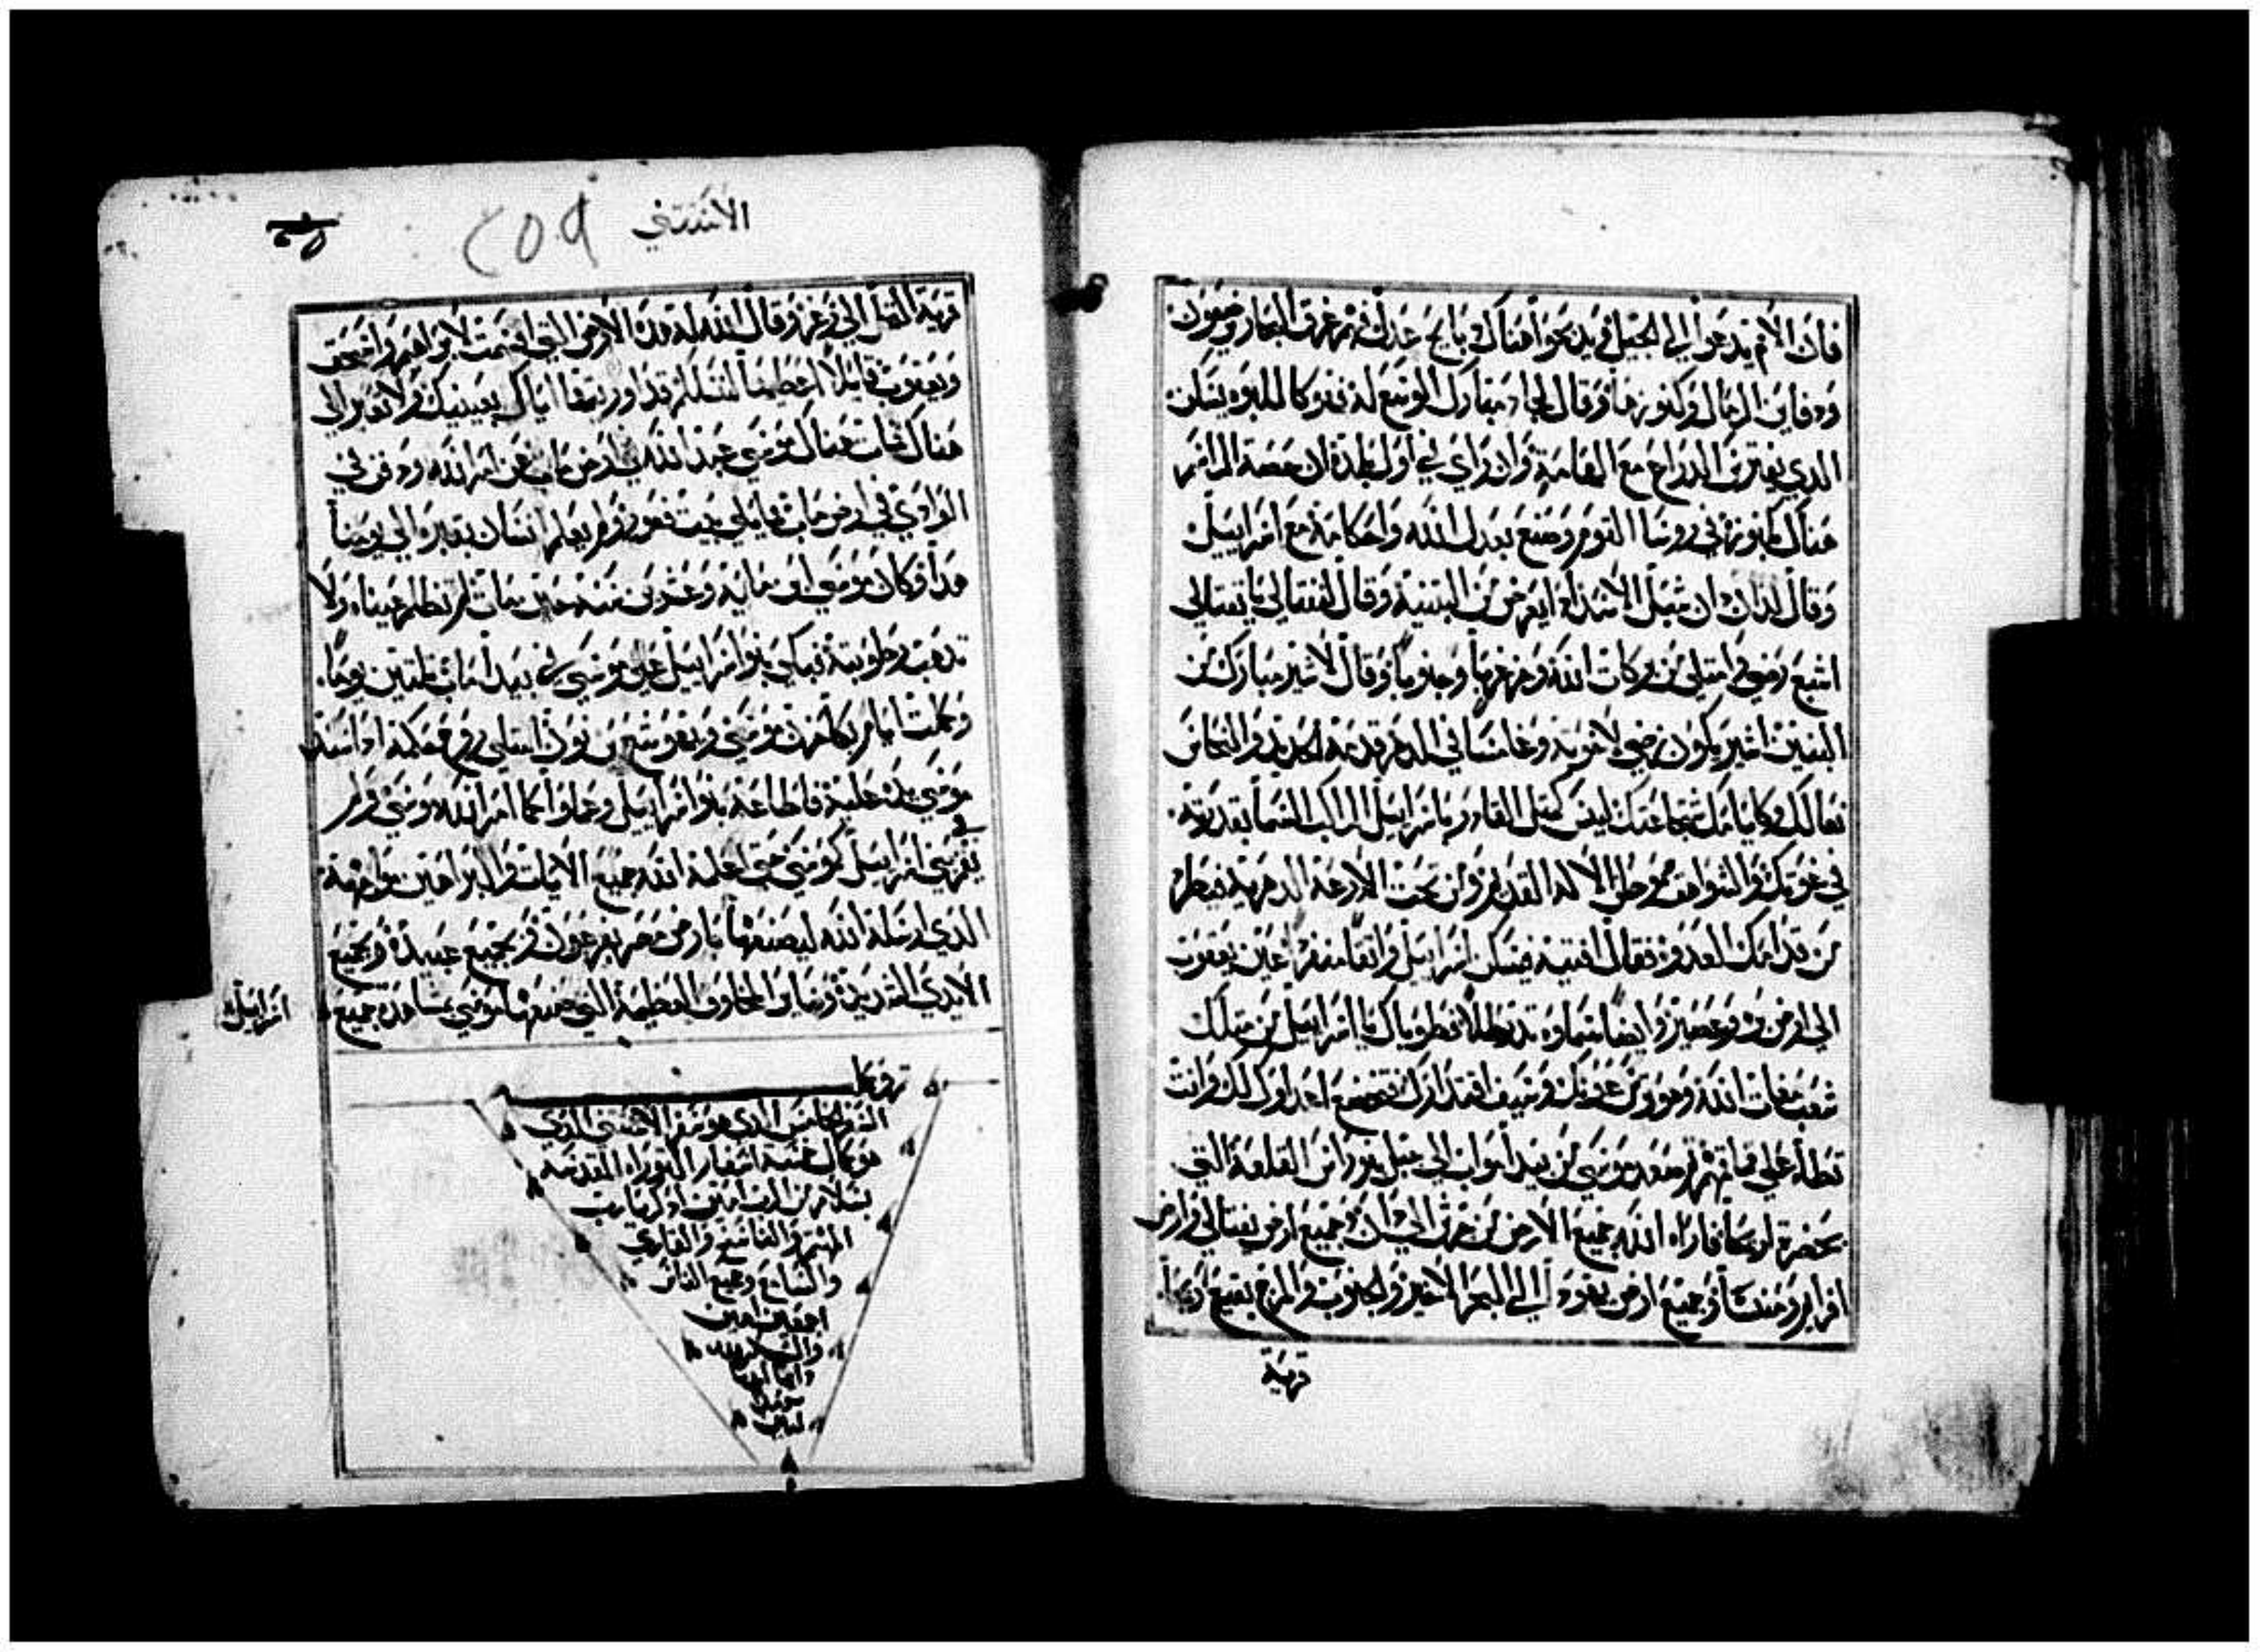 فان الامم يدعوا الي الجبل في يذبحوا هناك ذبايح عدل ثم غرف البحار ويضعون
ودفاين الرمال وكنوزها وقال لجاد مبارك الموسع لجاد فهو كاللبوه يسكن
الدي يفترس الدراع مع القامة وان راي في اول بلده ان حصة المراسم
هناك مكنوزه في روسا القوم وصنع بعدل الله واحكامه مع اسراييل
وقال لدان دان شبل الاسد اذ ايعرض من البتنية وقال لنفتالي يا نفتالي
اشبع رضي وامتلي من بركات الله ومن غربا وجنوبا وقال لاشير مبارك من
البنين اشير يكون رضي لاخوته وغامسا في الدهن قدمه الحديد والنحاس
نعالك وكايامك شجاعتك ليس كمثل القادر يا اسراييل الراكب السما بقدرته
في غوثك والشواهق موطن الاله القديم ومن تحت الادرعة الدهرية فيطرد
من قدامك العدو فقال افنيه فيسكن اسراييل واثقا منفردا عين يعقوب
الي ارض بر وعصير وايضا سماوه تدر طلا فطوباك يا اسراييل من مثلك
شعب مغاث الله وهو ومن عونك وسيف اقتدارك فتخضع اعداوك لك وانت
تطاء علي قماتهم ثم صعد موسي من بيدا مواب الي جبل نبو راس القلعة التي
بحضرة اريحا فاراه الله جميع الارض من جرش الي دان وجميع ارض نفتالي وارض
افرايم ومنسا وجميع ارض يهودا الي البحر الاخير والجنوب والمرج بقيع اريحا
قرية
الاستثني
٢٥٩
قرية النخل الي زغر وقال الله له هذه الارض التي اقسمت لابراهيم واسحق
ويعقوب قايلا اعطيها لنسلك قد اوريتها اياك بعينيك ولا تعبر الي
هناك فمات هناك موسي عبد الله في ارض ماب عن امر الله ودفن في
الوادي في ارض ماب مايلي بيت فغور ولم يعلم انسان بقبره الي يومنا
هذا وكان موسي ابن مايه وعشرين سنه حين مات لم تظلم عيناه ولا
تذهب رطوبته فبكي بنوا اسراييل علي موسي في بيدا ماب ثلثين يوما
وكملت ايام بكا حزن موسي ويهوشع بن نون امتلي روح حكمه اذ اسند
موسي يده عليه فاطاعه بنوا اسراييل وعملوا كما امر الله موسي ولم
يقم نبي في اسراييل كموسي حتي اعلمه الله جميع الايات والبراهين مواجهة
الدي ارسله الله ليصنعها بارض مصر بفرعون وبجميع عبيده وبجميع
الايدي الشديده وساير المخاوف العظيمة التي صنعها موسي بمشاهدة جميع
اسراييل
السفر الخامس الدي هو سفر الاستثني الدي
هو كمال خمسة اسفار التوراه المقدسة
بسلام من الرب امين ادكر يارب
المهتم والناسخ والقاري
والسامع وجميع الناس
اجمعين امين
والشكر لله
دايما ابديا